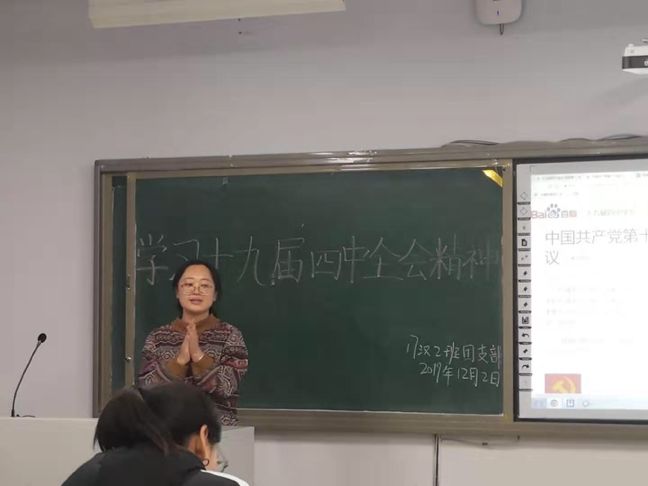 学习十九届四中全会精神
17汉2班团支部
2019年12月2日
Baidu百度
中国共产党第十
议